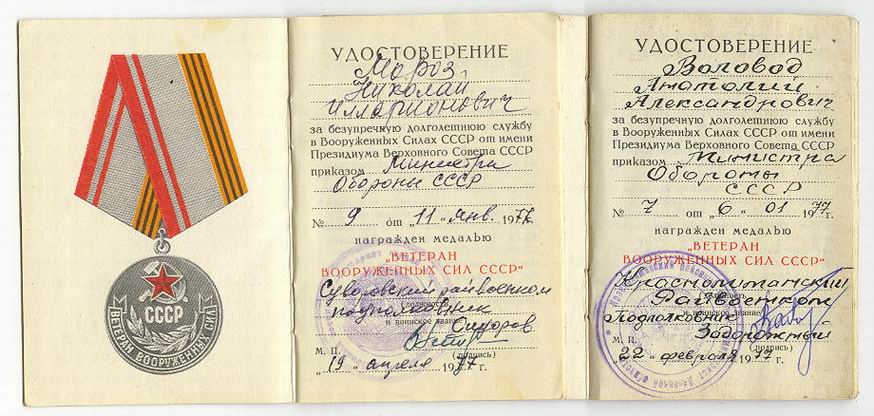 СССР
ВЕТЕРАН ВООРУЖЕННЫХ СИЛ
УДОСТОВЕРЕНИЕ
Мороз
Николай
Илларионович
за безупречную долголетнюю службу
в Вооруженных Силах СССР от имени
Президиума Верховного Совета СССР
приказом Министра
Обороны СССР
№ 9 от „11" янв. 1977г.
награжден медалью
„ВЕТЕРАН
ВООРУЖЕННЫХ СИЛ СССР"
Суворовский райвоенком
(должность
подполковник
и воинское звание)
Сидоров
(подпись)
М. П.
„19" апреля 1977 г.
УДОСТОВЕРЕНИЕ
Воловод
Анатолий
Александрович
за безупречную долголетнюю службу
в Вооруженных Силах СССР от имени
Президиума Верховного Совета СССР
приказом Министра
Обороны
СССР
№ 7 от „6" 01 1977г.
награжден медалью
„ВЕТЕРАН
ВООРУЖЕННЫХ СИЛ СССР"
Краснолиманский
Райвоенком
Подполковник
и воинское звание)
Задорожный
(подпись)
М. П.
„22" февраля 1977 г.